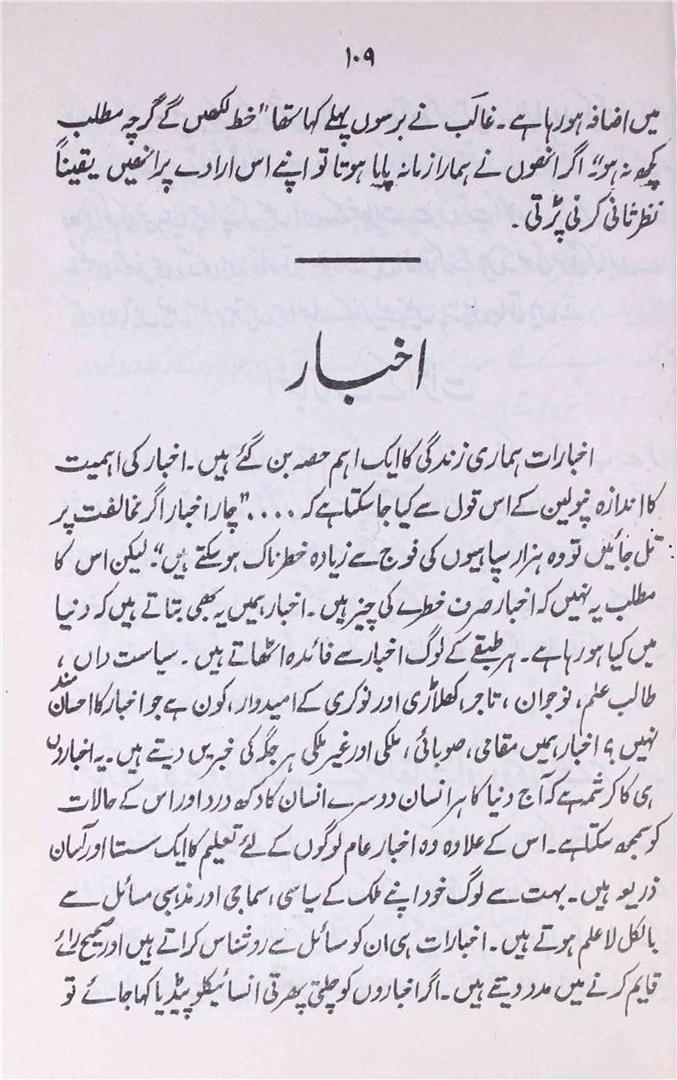 ۱۰۹
میں اضافہ ہو رہا ہے۔ غالبؔ نے برسوں پہلے کہا تھا "خط لکھیں گے گرچہ مطلب
کچھ نہ ہو" اگر انھوں نے ہمارا زمانہ پایا ہوتا تو اپنے اس ارادے پر انھیں یقیناً
نظر ثانی کرنی پڑتی۔
اخبار
اخبارات ہماری زندگی کا ایک اہم حصہ بن گئے ہیں۔ اخبار کی اہمیت
کا اندازہ نپولین کے اس قول سے کیا جا سکتا ہے کہ ....."چار اخبار اگر مخالفت پر
تل جائیں تو وہ ہزار سپاہیوں کی فوج سے زیادہ خطرناک ہو سکتے ہیں"۔ لیکن اس کا
مطلب یہ نہیں کہ اخبار صرف خطرے کی چیز ہیں۔ اخبار ہمیں یہ بھی بتاتے ہیں کہ دنیا
میں کیا ہو رہا ہے۔ ہر طبقے کے لوگ اخبار سے فائدہ اٹھاتے ہیں۔ سیاست داں،
طالب علم، نوجوان، تاجر، کھلاڑی اور نوکری کے امیدوار، کون ہے جو اخبار کا احسان مند
نہیں؟ اخبار ہمیں مقامی، صوبائی، ملکی اور غیر ملکی ہر جگہ کی خبریں دیتے ہیں۔ یہ اخباروں
ہی کا کرشمہ ہے کہ آج دنیا کا ہر انسان دوسرے انسان کا دکھ درد اور اس کے حالات
کو سمجھ سکتا ہے۔ اس کے علاوہ وہ اخبار عام لوگوں کے لئے تعلیم کا ایک سستا اور آسان
ذریعہ ہیں۔ بہت سے لوگ خود اپنے ملک کے سیاسی، سماجی اور مذہبی مسائل سے
بالکل لاعلم ہوتے ہیں۔ اخبارات ہی ان کو مسائل سے روشناس کراتے ہیں اور صحیح رائے
قایم کرنے میں مدد دیتے ہیں۔ اگر اخباروں کو چلتی پھرتی انسائیکلوپیڈیا کہا جائے تو